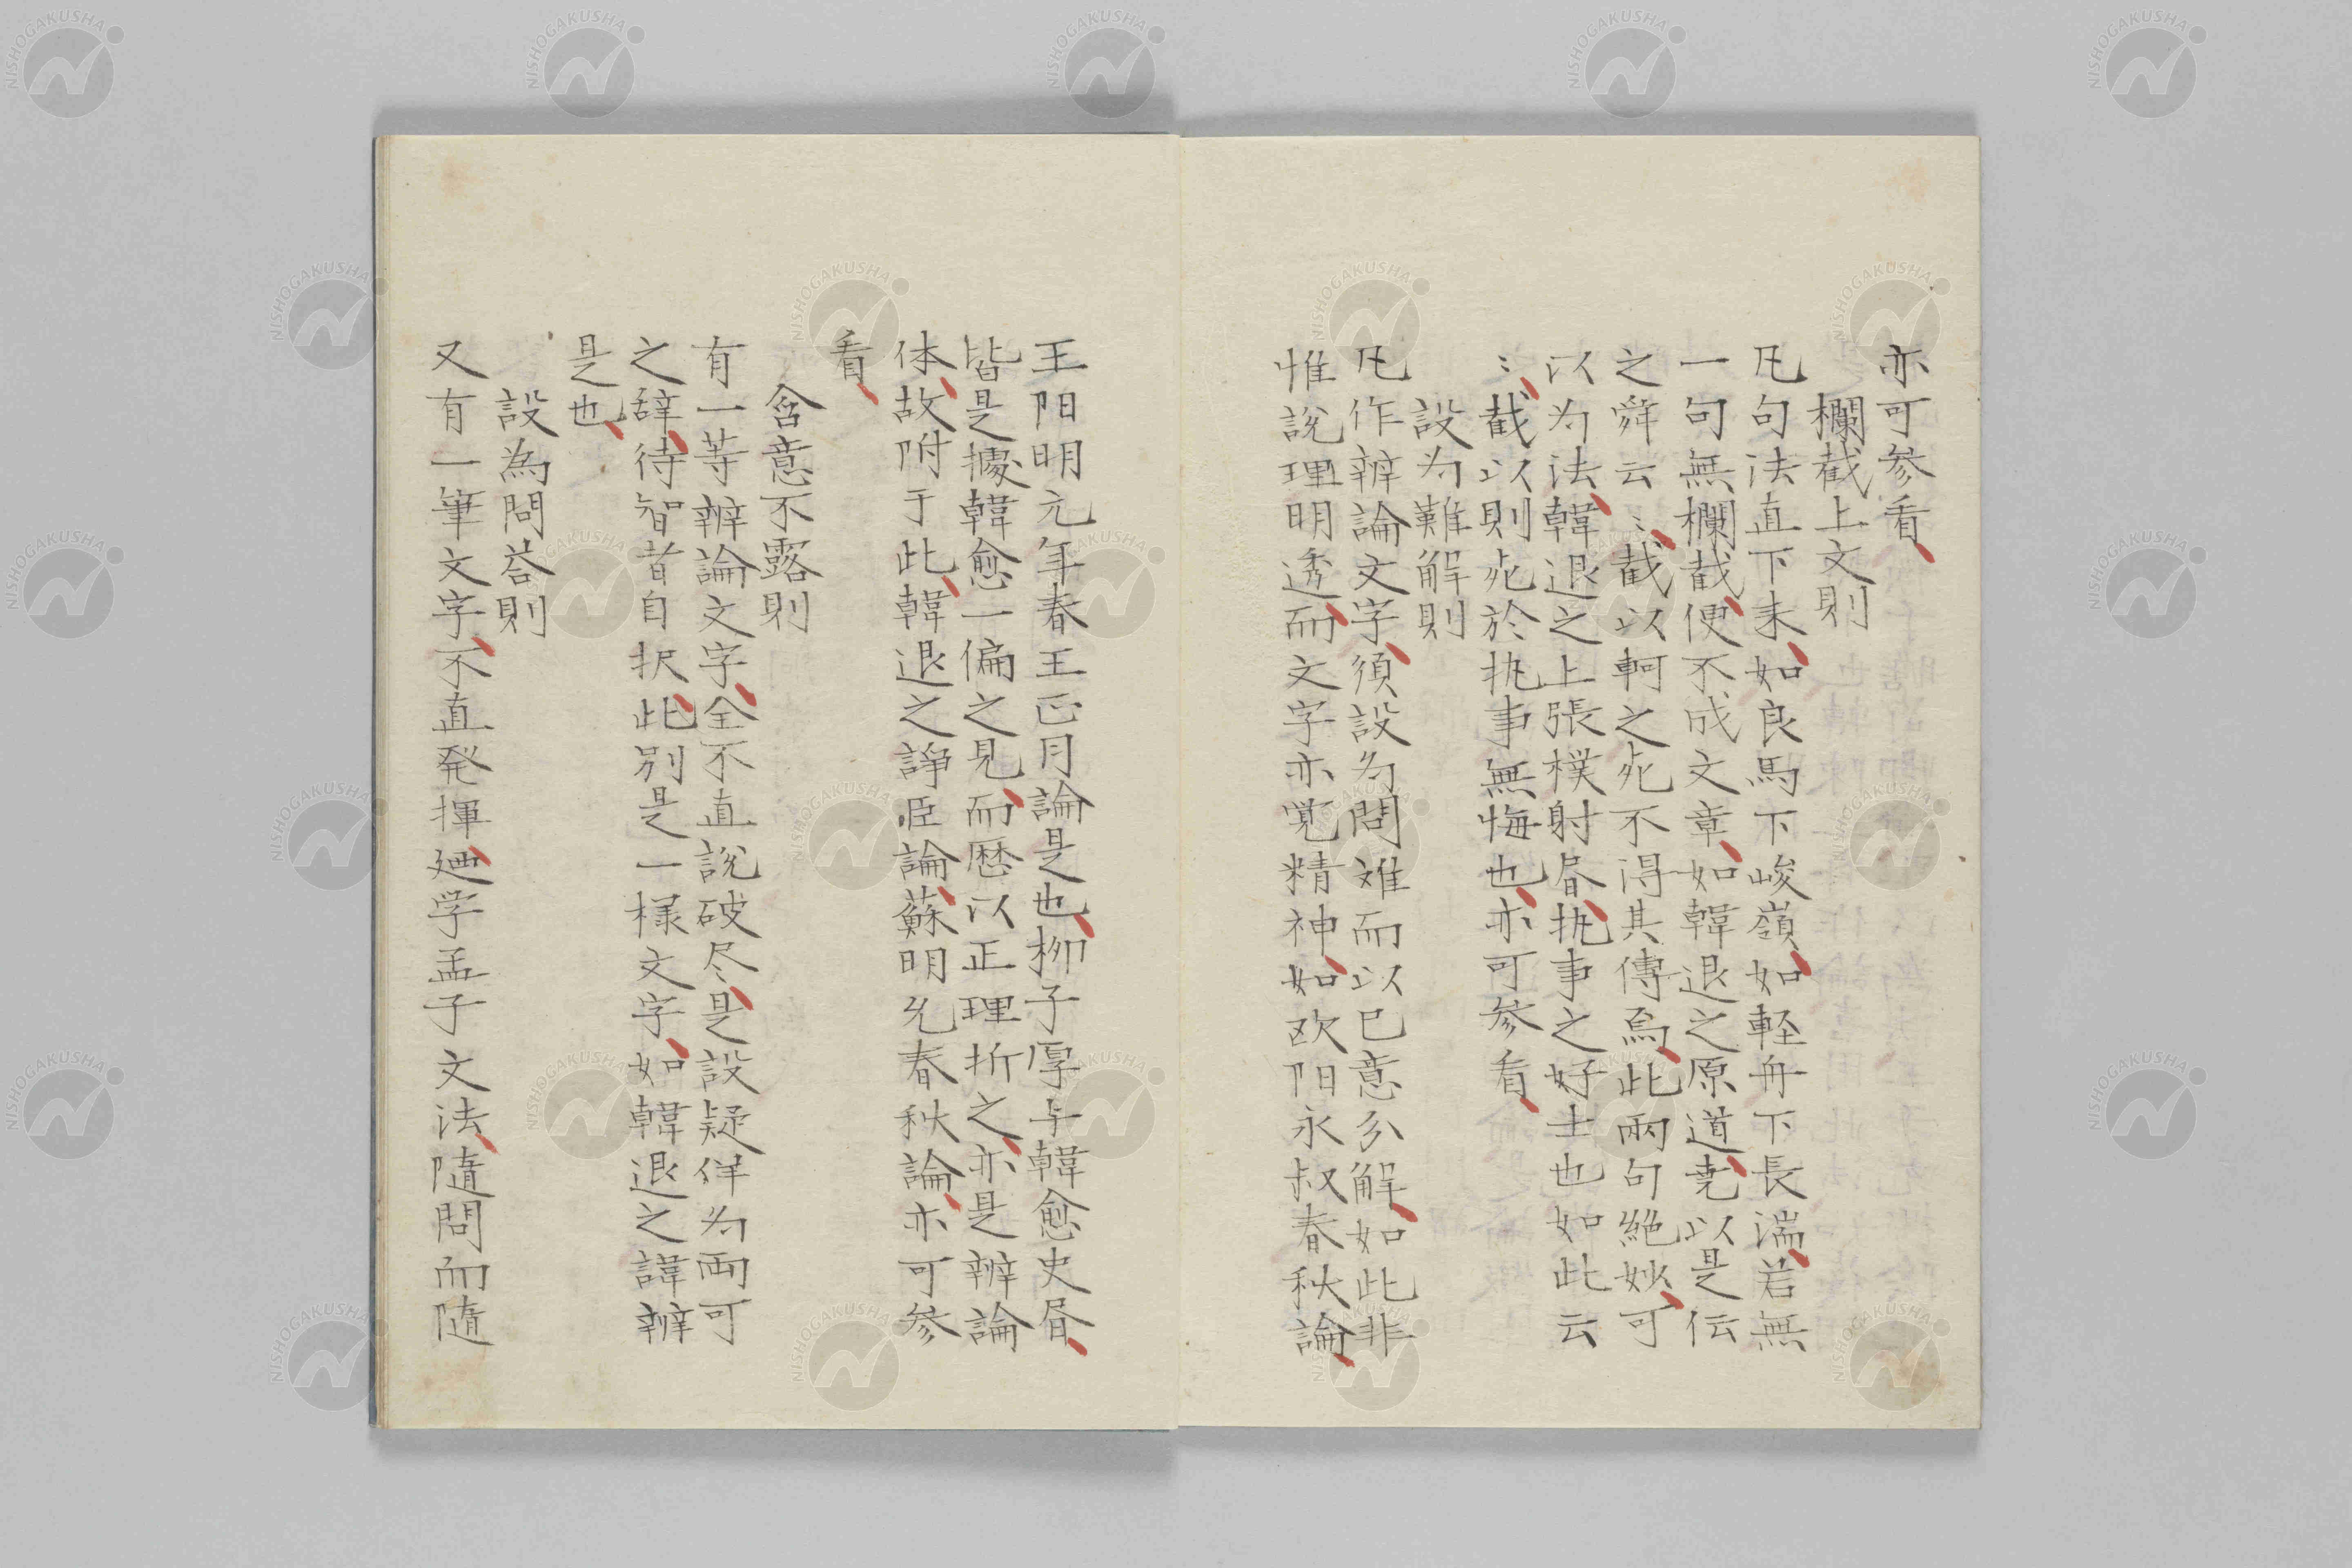 亦可參看、
欄截上文則
凡句法直下来、如良馬下峻嶺、如軽舟下長湍、若無
一句無欄截、便不成文章、如韓退之原道、尭以是伝
之舜云〻、截以軻之死不得其傳焉、此兩句絶妙、可
以为法、韓退之上張樸射書、执事之好士也如此云
〻、截以則死於执事無悔也、亦可參看、
設为難解則
凡作辨論文字、須設为問难而以己意分解、如此非
惟說理明透、而文字亦覚精神、如欧阳永叔春秋論、
王阳明元年春王正月論是也、柳子厚与韓愈史書、
皆是據韓愈一偏之見、而歴以正理折之、亦是辨論
体、故附于此、韓退之諍臣論、蘇明允春秋論、亦可參
看、
含意不露則
有一等辨論文字、全不直說破尽、是設疑佯为両可
之辞、待智者自択、此別是一様文字、如韓退之諱辨
是也、
設為問荅則
又有一筆文字、不直発揮、廼学孟子文法、隨問而隨
NISHOGAKUSHA